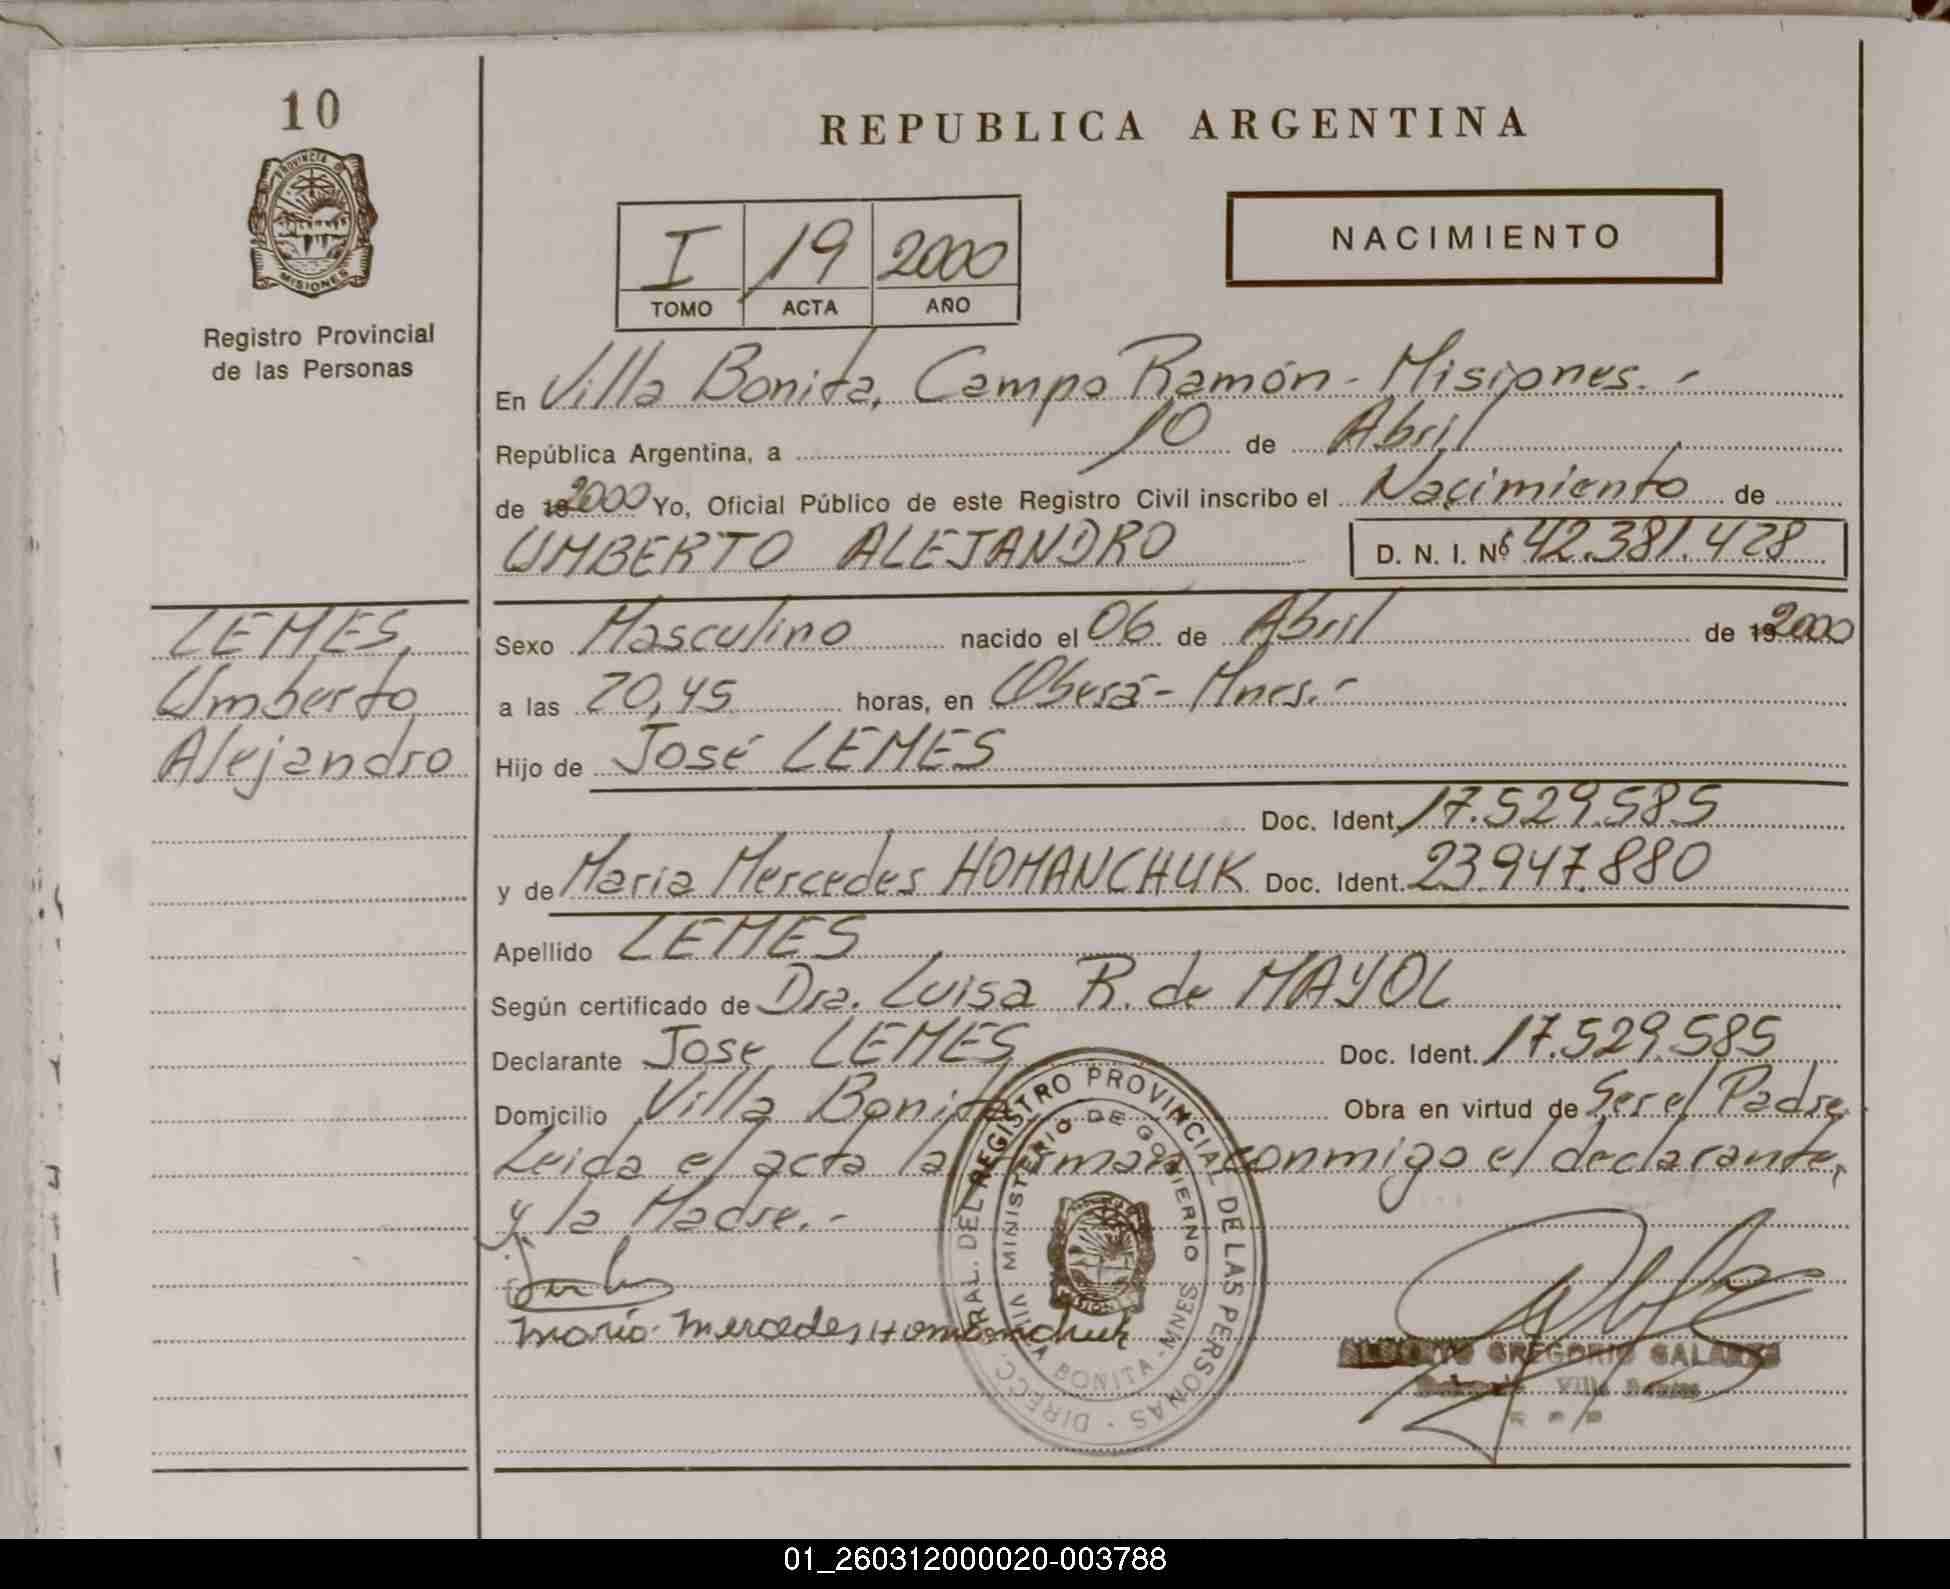 10
PROVINCIA DE
MISIONES
Registro Provincial
de las Personas
REPUBLICA ARGENTINA
I 19 2000
TOMO ACTA AÑO
NACIMIENTO
En Villa Bonita, Campo Ramón - Misiones.-
República Argentina, a 10 de Abril
de 2000 Yo, Oficial Público de este Registro Civil inscribo el Nacimiento de
UMBERTO ALEJANDRO D. N. I. Nº 42.381.428
LEMES,
Umberto
Alejandro
Sexo Masculino nacido el 06 de Abril de 19 2000
a las 20,45 horas, en Oberá - Mnes.-
Hijo de José LEMES
Doc. Ident. 17.529.585
y de Maria Mercedes HOMANCHUK Doc. Ident. 23.947.880
Apellido LEMES
Según certificado de Dra. Luisa R. de MAYOL
Declarante Jose LEMES Doc. Ident. 17.529.585
Domicilio Villa Bonita Obra en virtud de Ser el Padre
Leida el acta la firman conmigo el declarante,
y la Madre.-
Maria Mercedes Homanchuk
DIRECC. GRAL. DEL REGISTRO PROVINCIAL DE LAS PERSONAS
MINISTERIO DE GOBIERNO
VILLA BONITA - MNES
ALBERTO GREGORIO
Villa Bonita
01_260312000020-003788